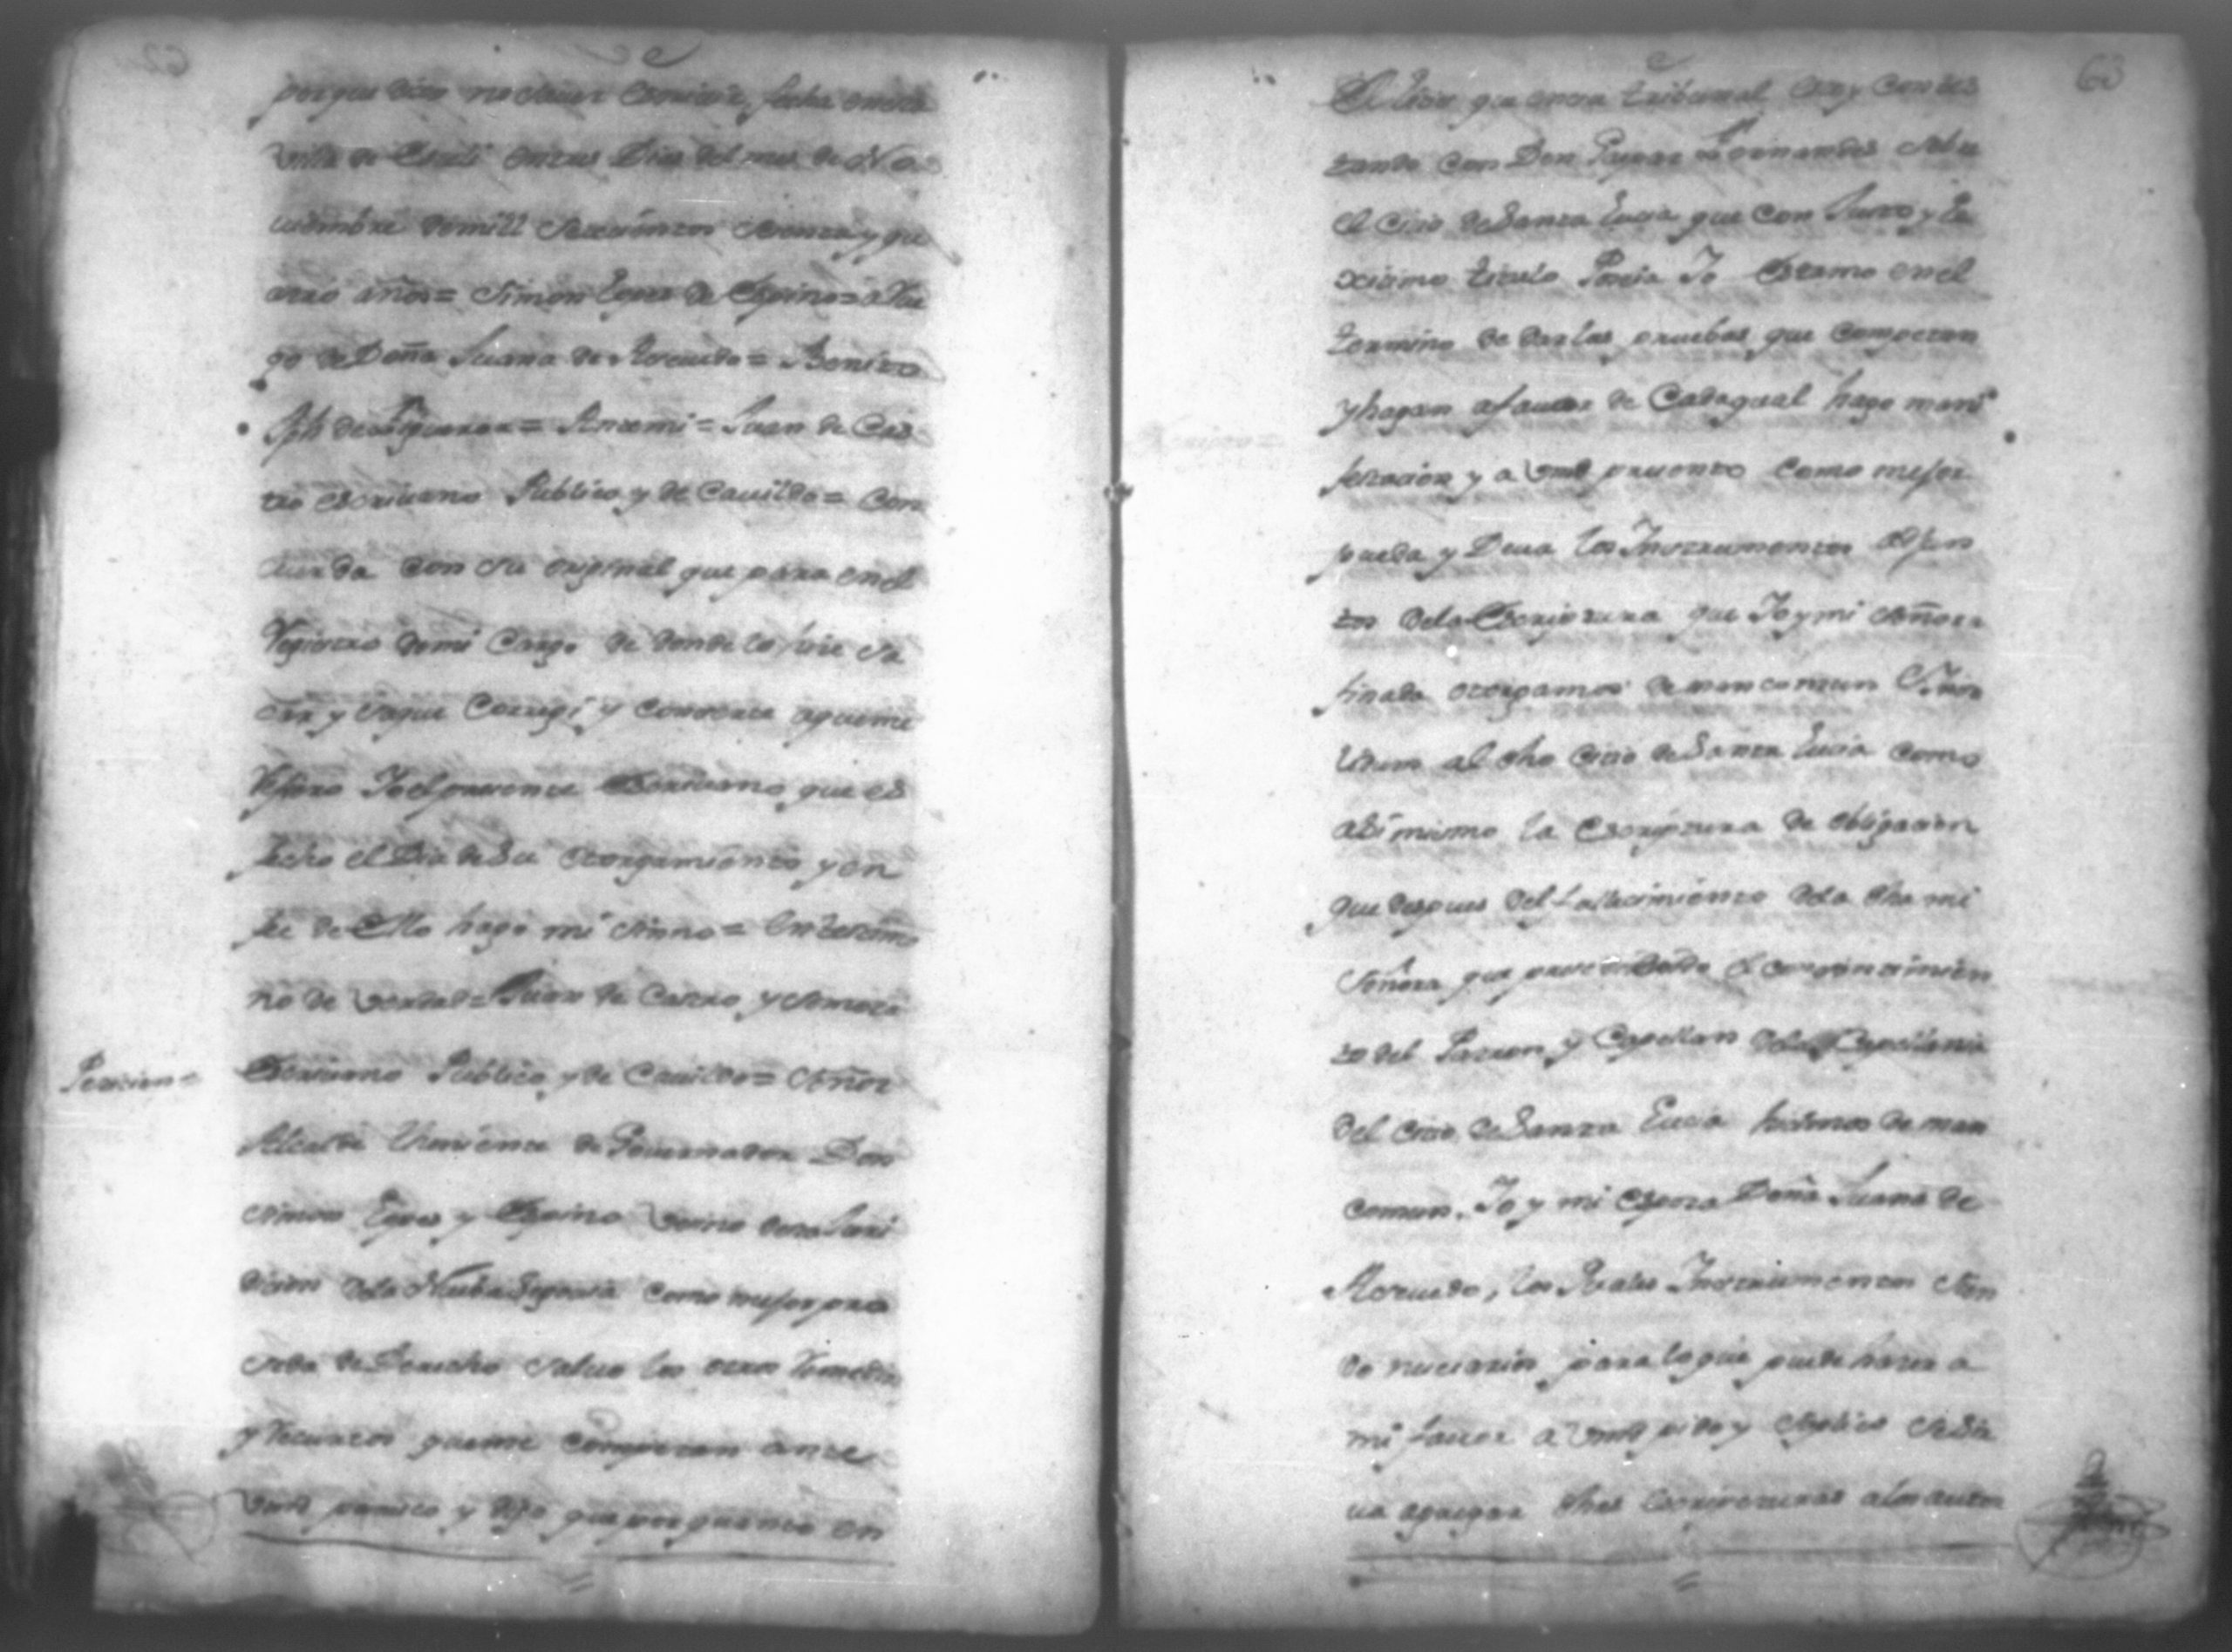 porque dixo no sauer escriuir, fecha en esta
Villa de Esteli en tres Dias del mes de No
uiembre de mill setecientos setenta y qu
atro años= Simon Lopes de Espino= a Rue
go de Doña Juana de Aseuedo= Benito
Jph de Figueroa= Ante mi= Juan de Cas
tro escriuano Publico y de Cauildo= Con
cuerda con su original que para en el
Registro de mi Cargo de donde lo hise sa
car y saque Corregi y conserte a que me
refiero Yo el presente Escriuano que es
fecho el Dia de su otorgamiento y en
fee de Ello hago mi signo= En testimo
nio de verdad= Juan de Castro y
Peticion=
Escriuano Publico y de Cauildo= Señor
Alcalde Theniente de Gouernador Don
Simon Lopes y Espino Vecino de esta Juris
dicion de la Nueba Segouia como mejor pro
seda de Derecho saluo los otros remedios
y recursos que me competan ante
Vmd paresco y digo que por quanto en
63
El Litis que en este tribunal estoy contes
tando con Don Fernandes sobre
el citio de Santa Lucia que con Justo y le
xitimo titulo Poseia Yo Estamo en el
termino de dar las pruebas que competan
y hagan a fauor de Cada qual hago mani
festacion y a Vmd presento como mejor
pueda y Deua los Instrumentos adjun
tos de la Escriptura que Yo y mi señora
finada otorgamos de mancomun
al dho citio de Santa Lucia como
asi mismo la Escriptura de obligacion
que despues del fallecimiento de la dha mi
Señora que el consentimien
to del Patron y Capellan de la Capellania
del citio de Santa Lucia hisimos de man
comun, Yo y mi Esposa Doña Juana de
Aseuedo, los Reales Instrumentos sien
do nesesarios para lo que puede haser a
mi fauor a Vmd pido y suplico se sir
ua agregar dhas Escripturas a los autos